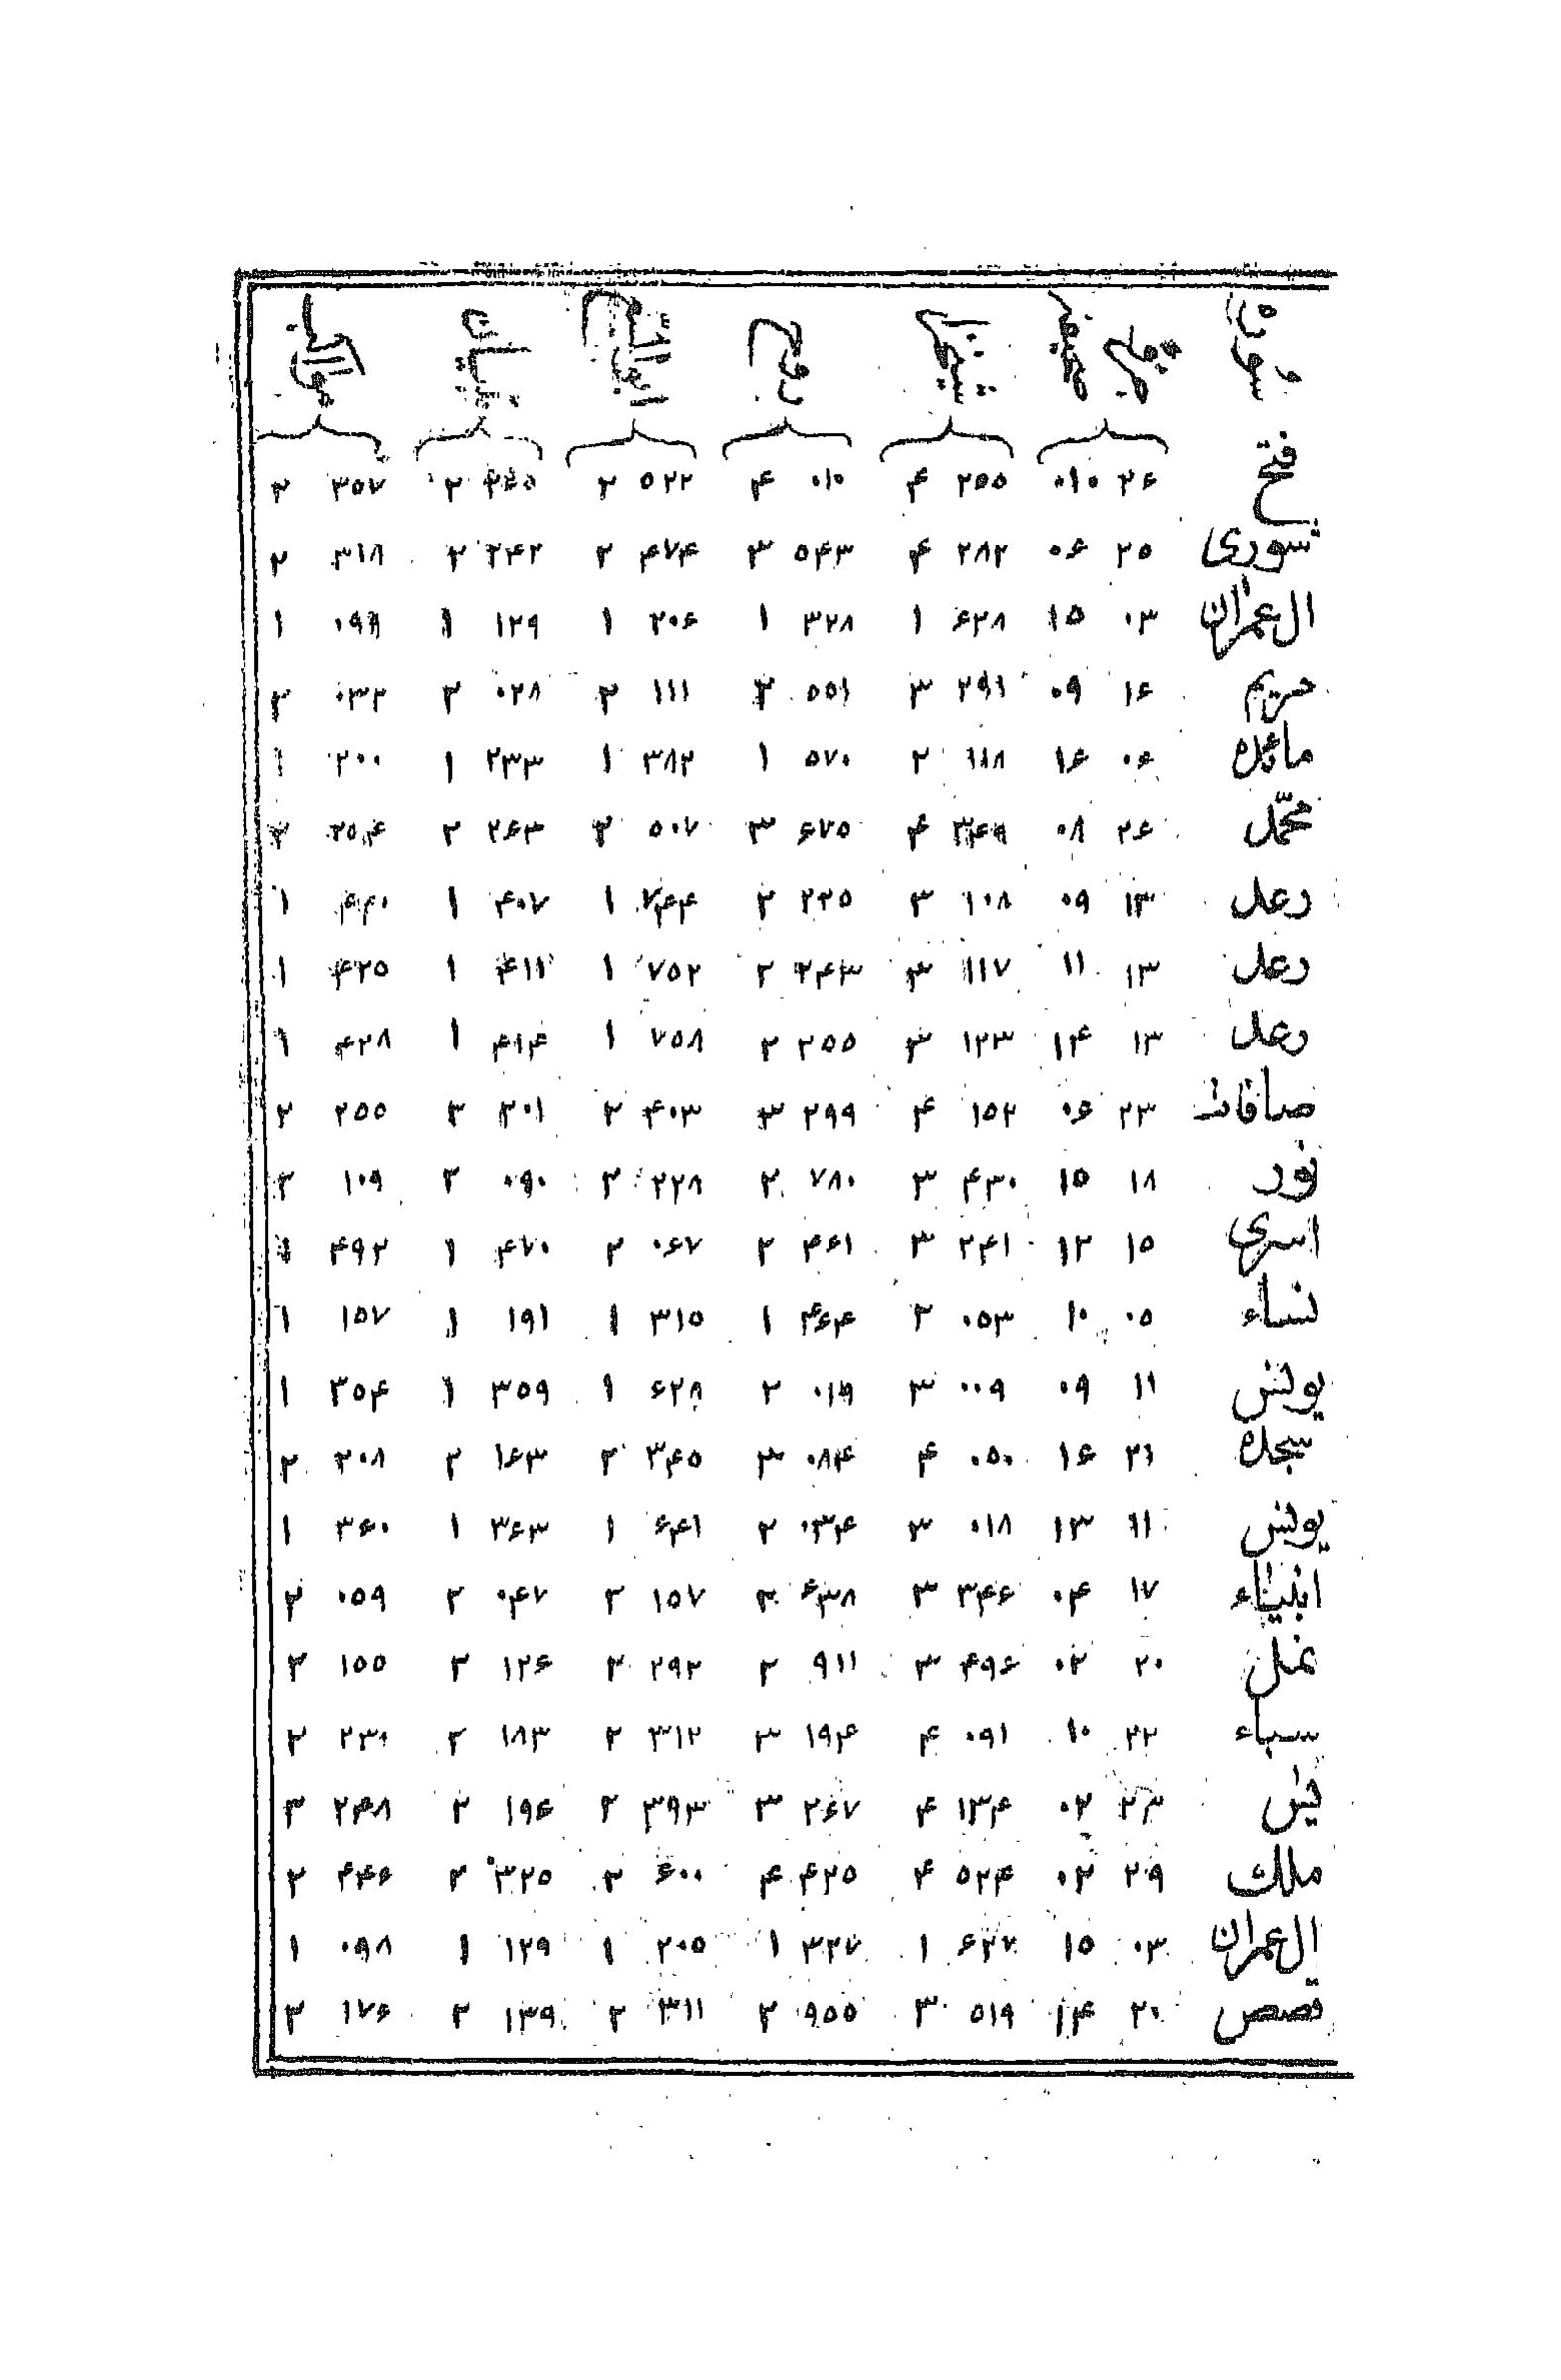 فتح ۲۶ ۰۱۰ ۲۵۵ ۴ ۰۱۰ ۴ ۵۲۲ ۲ ۲ ۳۵۷ ۲
شوری ۲۵ ۰۶ ۲۸۲ ۴ ۵۴۳ ۳ ۴۷۴ ۲ ۲۴۲ ۲ ۳۱۸ ۲
ال عمران ۰۳ ۱۵ ۶۲۸ ۱ ۳۲۸ ۱ ۲۰۶ ۱ ۱۲۹ ۱ ۱
مریم ۱۶ ۰۹ ۲۹۱ ۳ ۵۵۱ ۲ ۱۱۱ ۲ ۰۲۸ ۲ ۰۳۲ ۲
مائده ۰۶ ۱۶ ۱۱۸ ۲ ۵۷۰ ۱ ۳۸۲ ۱ ۲۳۳ ۱ ۲۰۰ ۱
محمّد ۲۶ ۰۸ ۴ ۶۷۵ ۳ ۵۰۷ ۲ ۲۶۳ ۲ ۲۵۴ ۲
رعد ۱۳ ۰۹ ۱۰۸ ۳ ۲۲۵ ۲ ۷۴۴ ۱ ۴۰۷ ۱ ۴۲۰ ۱
رعد ۱۳ ۱۱ ۱۱۷ ۳ ۲۴۳ ۲ ۷۵۲ ۱ ۴۱۱ ۱ ۴۲۵ ۱
رعد ۱۳ ۱۴ ۱۲۳ ۳ ۲۵۵ ۲ ۷۵۸ ۱ ۴۱۴ ۱ ۴۲۸ ۱
صافات ۲۳ ۰۶ ۱۵۲ ۴ ۲۹۹ ۳ ۴۰۳ ۲ ۲۰۱ ۲ ۲۵۵ ۲
نور ۱۸ ۱۵ ۴۳۰ ۳ ۷۸۰ ۲ ۲۲۸ ۲ ۰۹۰ ۲ ۱۰۹ ۲
اسری ۱۵ ۱۲ ۲۴۱ ۳ ۴۶۱ ۲ ۰۶۷ ۲ ۴۷۰ ۱ ۴۹۲ ۱
نساء ۰۵ ۱۰ ۰۵۳ ۲ ۴۶۴ ۱ ۳۱۵ ۱ ۱۹۱ ۱ ۱۵۷ ۱
یونس ۱۱ ۰۹ ۰۰۹ ۳ ۲ ۶۲۸ ۱ ۳۵۹ ۱ ۳۵۴ ۱
سجده ۲۱ ۱۶ ۰۵۰ ۴ ۰۸۴ ۳ ۳۴۵ ۲ ۱۶۳ ۲ ۲۰۸ ۲
یونس ۱۱ ۱۳ ۰۱۸ ۳ ۰۳۴ ۲ ۶۴۱ ۱ ۳۶۳ ۱ ۳۶۰ ۱
انبیاء ۱۷ ۰۴ ۳۴۶ ۳ ۶۳۸ ۲ ۱۵۷ ۲ ۰۴۷ ۲ ۰۵۹ ۲
نمل ۲۰ ۰۲ ۴۹۶ ۳ ۹۱۱ ۲ ۲۹۲ ۲ ۱۲۶ ۲ ۱۵۵ ۲
سباء ۲۲ ۱۰ ۰۹۱ ۴ ۱۹۴ ۳ ۳۱۲ ۲ ۱۸۳ ۲ ۲۳۰ ۲
۲۳ ۰۲ ۱۳۴ ۴ ۲۶۷ ۳ ۳۹۳ ۲ ۱۹۶ ۲ ۲۴۸ ۲
ملك ۲۹ ۰۲ ۵۲۴ ۴ ۴۲۵ ۴ ۶۰۰ ۲ ۳۲۵ ۲ ۴۴۶ ۲
ال عمران ۰۳ ۱۵ ۶۲۷ ۱ ۳۲۷ ۱ ۲۰۵ ۱ ۱۲۹ ۱ ۰۹۸ ۱
قصص ۲۰ ۱۴ ۵۱۹ ۳ ۹۵۵ ۲ ۳۱۱ ۲ ۱۳۹ ۲ ۱۷۶ ۲